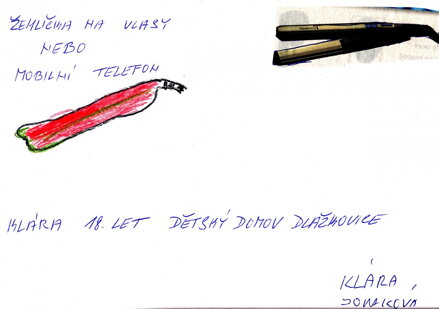 ŽEHLIČKA NA VLASY
NEBO
MOBILNÍ TELEFON
KLÁRA 18. LET DĚTSKÝ DOMOV DLAŽKOVICE
KLÁRA